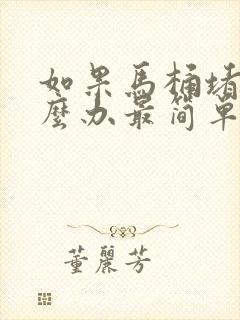 如果馬桶堵
麼办最简单
董麗芳